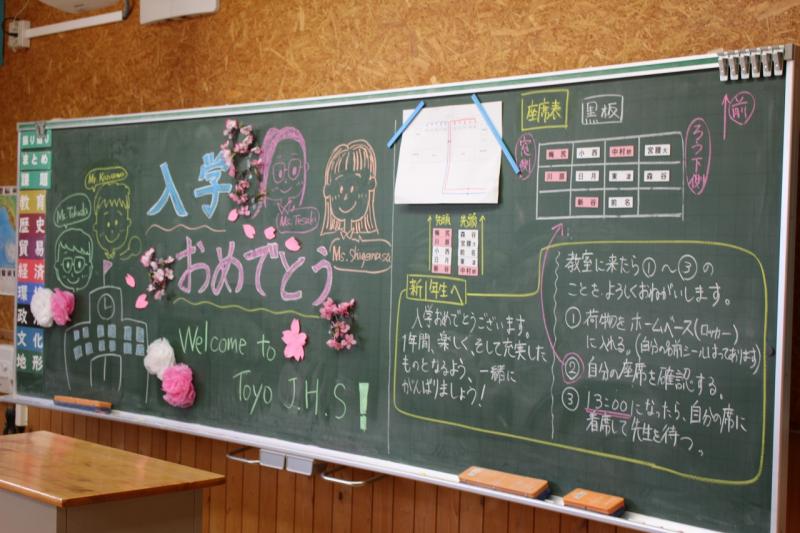 まとめ
課題
教育
歴史
貿易
経済
環境
政
文化
地形
Mr. Kanzawa
入学
おめでとう
Ms. Shigemasa
Welcome to
Toyo J.H.S!
先頭 先頭
新1年生へ
入学おめでとうございます。
1年間、楽しく、そして充実した
ものとなるよう、一緒に
がんばりましょう!
座席表
黒板
前
窓側
ろうか側
梅尻 小西 中村 宮腰
川原 日月 東 森谷
新谷 前名
教室に来たら①~③の
ことをよろしくおねがいします。
① 荷物をホームベース(ロッカー)
に入れる。(自分の名前シールはってあります)
② 自分の座席を確認する。
③ 13:00になったら、自分の席に
着席して先生を待つ。